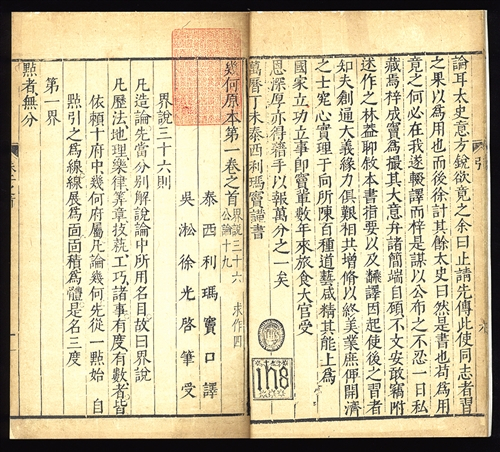 引
論耳太史意方銳欲竟之余曰止請先傳此使同志者習
之果以為用也而後徐計其餘太史曰然是書也苟為用
竟之何必在我遂輟譯而梓是謀以公布之不忍一日私
藏焉梓成竇為撮其大意弁諸簡端自顧不文安敢竊附
述作之林蓋聊敘本書指要以及翻譯因起使後之習者
知夫創通大義緣力俱艱相共增修以終美業庶俾開濟
之士究心實理于向所陳百種道藝咸精其能上為
國家立功立事即竇輩數年來旅食大官受
恩深厚亦得藉手以報萬分之一矣
萬曆丁未泰西利瑪竇謹書
ihs
幾何原本第一卷之首 界說三十六 公論十九 求作四
泰西利瑪竇口譯
吳淞徐光啓筆受
界說三十六則
凡造論先當分別解說論中所用名目故曰界說
凡歷法地理樂律筭章技藝工巧諸事有度有數者皆
依賴十府中幾何府屬凡論幾何先從一點始自
點引之為線線展為面面積為體是名三度
第一界
點者無分